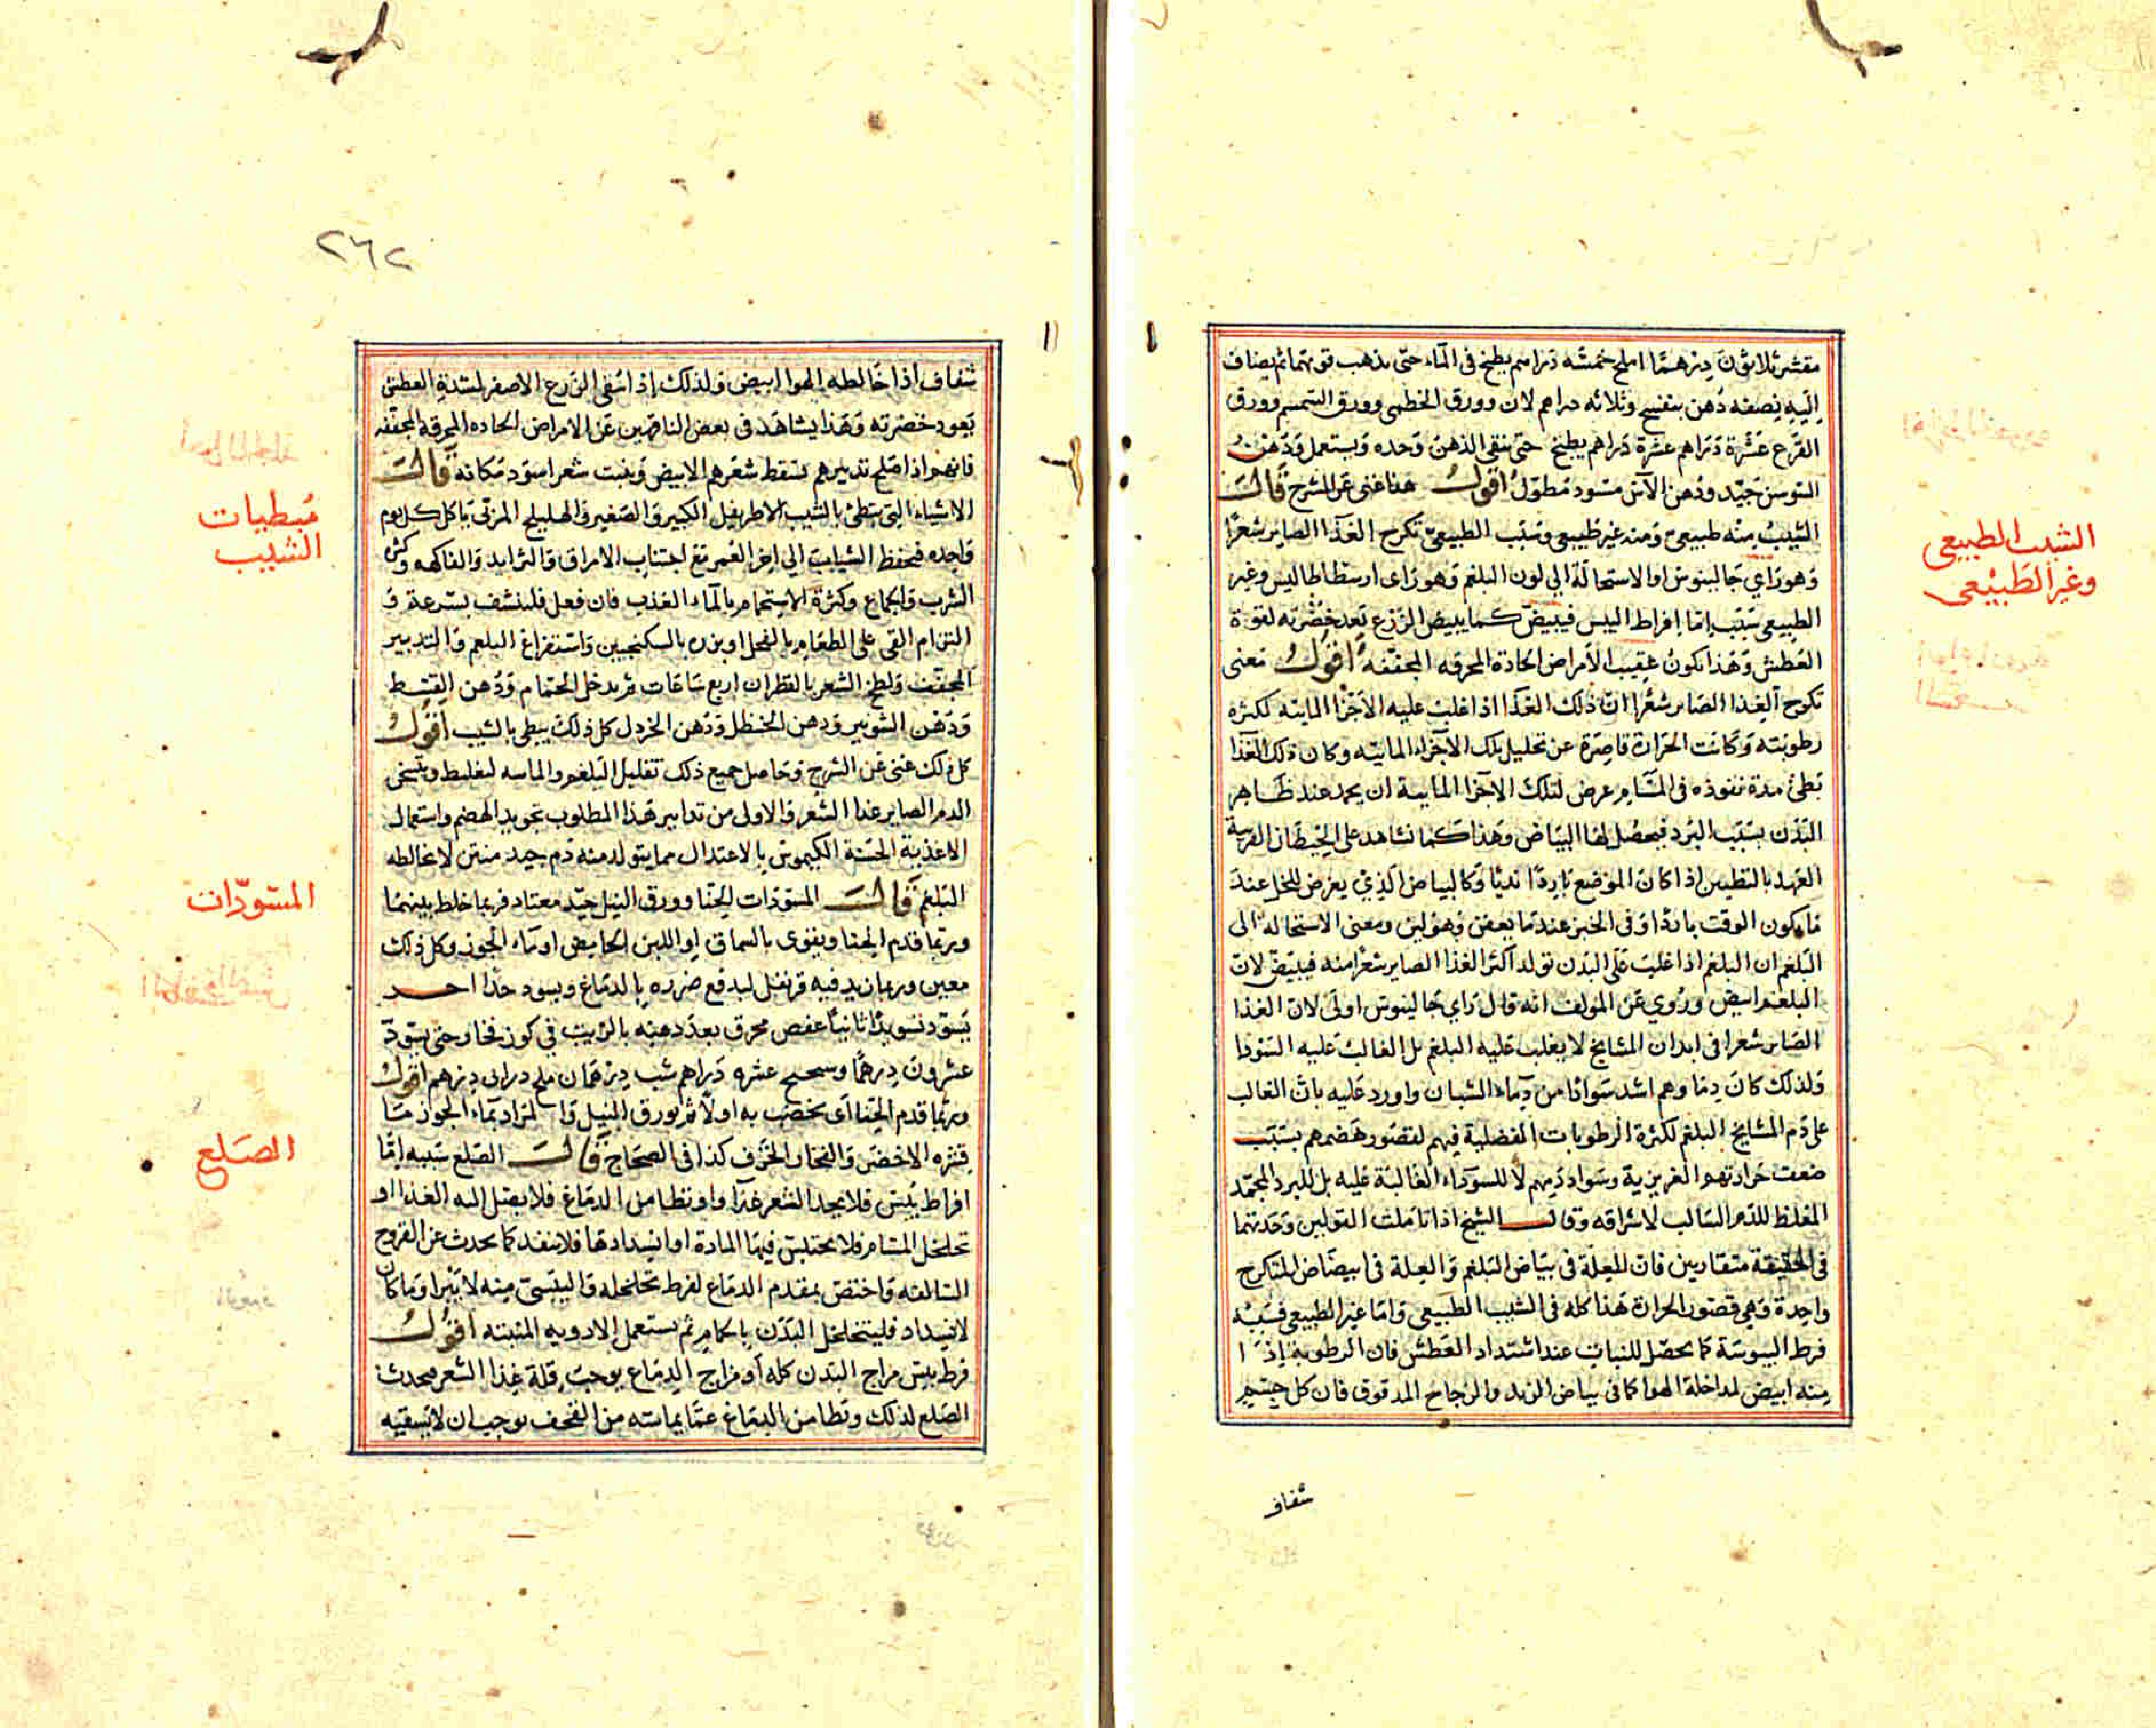 مقشر ثلاثون درهما املج خمسه دراهم يطبخ في الماء حتى يذهب قوتهما ثم يضاف
اليه نصفه دهن بنفسج وثلاثه دراهم لادن وورق الخطمى وورق السمسم وورق
القرع عشرة دراهم عشرة دراهم يطبخ حتى يبقى الدهن وحده ويستعمل ودهن
السوسن جيد ودهن الآس مسود مطول اقول هذا غنى عن الشرح قالت
الشيب منه طبيعى ومنه غير طبيعى وسبب الطبيعى تكرج الغذا الصاير شعرا
وهو راي جالينوس او الاستحالة الى لون البلغم وهو راى ارسطاطاليس وغير
الطبيعى سببه اما افراط اليبس فيبيض كما يبيض الزرع بعد خضرته لقوة
العطش وهذا يكون عقيب الامراض الحادة المحرقه المجففة اقول معنى
تكرج الغذا الصاير شعرا ان ذلك الغذا اذا غلبت عليه الاجزا المايية لكثرة
رطوبته وكانت الحرارة قاصرة عن تحليل تلك الاجزاء المائيه وكان ذلك الغذا
بطئ مدة نفوذه في المسام عرض لتلك الاجزا المايية ان يحمد عند ظاهر
البدن بسبب البرد فيحصل لها البياض وهذا كما نشاهد على الحيطان القريبة
العهد بالتطيين اذا كان الموضع باردا نديا وكالبياض الذي يعرض للخل عند
ما يكون الوقت باردا وفي الخبز عند ما يعفن وهو لين ومعنى الاستحالة الى
البلغم ان البلغم اذا غلب على البدن تولد اكثر الغذا الصاير شعرا منه فيبيض لان
البلغم ابيض وروي عن المولف انه قال راي جالينوس اولى لان الغذا
الصاير شعرا في ابدان المشايخ لا يغلب عليه البلغم بل الغالب عليه السودا
ولذلك كان دماوهم اشد سوادا من دماء الشبان واورد عليه بان الغالب
على دم المشايخ البلغم لكثرة الرطوبات الفضلية فيهم لقصور هضمهم بسبب
ضعف حرارتهم الغريزية وسواد دمهم لا للسوداء الغالبة عليه بل للبرد المجمد
المغلظ للدم السالب لاشراقه وقال الشيخ اذا تاملت القولين وجدتهما
في الحقيقة متقاربين فان العلة في بياض البلغم والعلة في ابيضاض المتكرج
واحدة وهي قصور الحرارة هذا كله في الشيب الطبيعى واما غير الطبيعى فسببه
فرط اليبوسة كما يحصل للنبات عند اشتداد العطش فان الرطوبة اذا
منه ابيض لمداخلة الهوا كما في بياض الزبد والزجاج المدقوق فان كل جسم
شفاف
الشيب الطبيعى
وغير الطبيعى
٢٦٢
شفاف اذا خالطه الهوا ابيض ولذلك اذا سقى الزرع الاصفر لشدة العطش
يعود خضرته وهذا يشاهد في بعض الناقهين عن الامراض الحاده المحرقه المجففه
فانهم اذا اصلح تدبيرهم سقط شعرهم الابيض ونبت شعر اسود مكانه قالت
الاشياء التى تبطئ بالشيب الاطريفل الكبير والصغير والهليلج المربى باكل كل يوم
واحده فيحفظ الشباب الى اخر العمر مع اجتناب الامراق والثرايد والفاكهه وكثرة
الشرب والجماع وكثرة الاستحمام بالماء العذب فان فعل فلينشف بسرعة و
التزام القى على الطعام بالفجل او بزره بالسكنجبين واستفراغ البلغم والتدبير
المجفف ولطخ الشعر بالقطران اربع ساعات ثم يدخل الحمام ودهن القسط
ودهن الشونيز ودهن الحنظل ودهن الخردل كل ذلك يبطى بالشيب اقول
كل ذلك غنى عن الشرح وحاصل جميع ذلك تقليل البلغم والماييه ليغلظ ويسخن
الدم الصاير غذا الشعر والاولى من تدابير هذا المطلوب تجويد الهضم واستعمال
الاغذية الحسنة الكيموس بالاعتدال مما يتولد منه دم جيد متين لا يخالطه
البلغم قالت المسودات الحنا وورق النيل جيد معتاد فربما خلط بينهما
وربما قدم الحنا ويقوى بالسماق او اللبن الحامض او ماء الجوز وكل ذلك
معين وربما زيد فيه قرنفل ليدفع ضرره بالدماغ ويسود جدا اخر
يسود تسويدا ثانيا عفص محرق بعد دهنه بالزيت في كوز فخار حتى يسود
عشرون درهما وسحج عشره دراهم شب درهمان ملح درانى درهم اقول
وربما قدم الحنا اى يخضب به اولا ثم بورق النيل والمراد بماء الجوز ما
قشره الاخضر والفخار الخزف كذا في الصحاح قالت الصلع سببه اما
افراط يبس فلا يجد الشعر غذا واو تطامن الدماغ فلا يصل اليه الغذا او
تخلخل المسام فلا يحتبس فيها المادة او انسدادها فلا ينفذ كما يحدث عن القروح
السالفه واختص بمقدم الدماغ لفرط تخلخله واليبسى منه لا يبرا وما كان
لانسداد فليتخلخل البدن بالحمام ثم يستعمل الادويه المنبته اقول
فرط يبس مزاج البدن كله او مزاج الدماغ يوجب قلة غذا الشعر فيحدث
الصلع لذلك وتطامن الدماغ عما يماسه من القحف يوجب ان لا يسقيه
مبطيات
الشيب
المسودات
الصلع